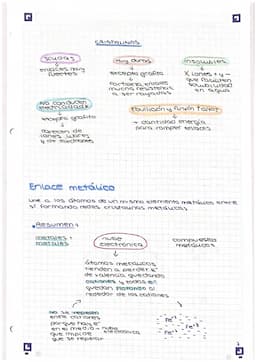 CRISTALINOS
SÓLIDOS
muy duros
insolubles
enlaces muy
fuertes
excepto grafito
mucha resistencia
a ser rayados
X iones + y -
solubilidad
en agua
No conducen
electricidad
excepto grafito
carecen de
iones libres
y de electrones
Ebullición y fusión
+ cantidad energía
para romper enlaces
Enlace metálico
une a los átomos de un mismo elemento metálico entre
sí formando redes cristalinas metálicas
Resumen:
metales +
metales
nube
electrónica
compuestos
metálicos
átomos metálicos
tienden a perder e-
de valencia quedando
cationes y todos e-
quedan flotando al
rededor de los cationes
No se repelen
entre cationes
porque hay e-
en medio - nube
electrónica
que impide
que se repelan